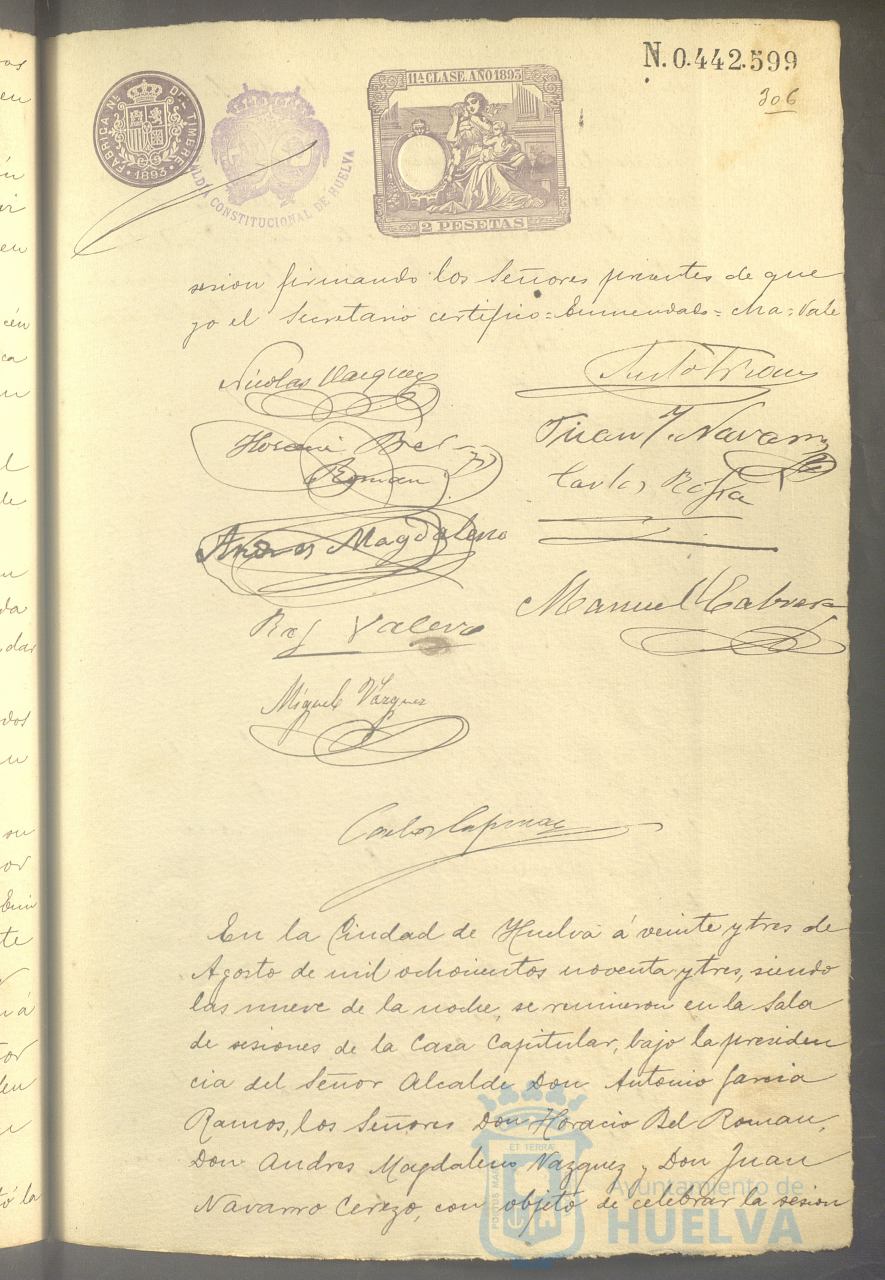 N. 0.442.599
306
FABRICA NL. DEL TIMBRE
1893
ALDIA CONSTITUCIONAL DE HUELVA
11ª CLASE. AÑO 1893
2 PESETAS
sesion firmando los Señores presentes de que
yo el Secretario certifico = Enmendado = cha = Vale
Nicolas Vazquez
Horacio Bel
Roman
Juan J. Navarro
Carlos
Andres Magdaleno
Manuel Cabrera
Raf Valero
Miguel Vázquez
Carlos
En la Ciudad de Huelva á veinte y tres de
Agosto de mil ochocientos noventa y tres, siendo
las nueve de la noche, se reunieron en la Sala
de sesiones de la Casa Capitular, bajo la presiden
cia del Señor Alcalde Don Antonio Garcia
Ramos, los Señores Don Horacio Bel Roman,
Don Andres Magdaleno Vazquez y Don Juan
Navarro Cerezo, con objeto de celebrar la sesion
PORTUS MA
ET TERRA
Ayuntamiento de
HUELVA